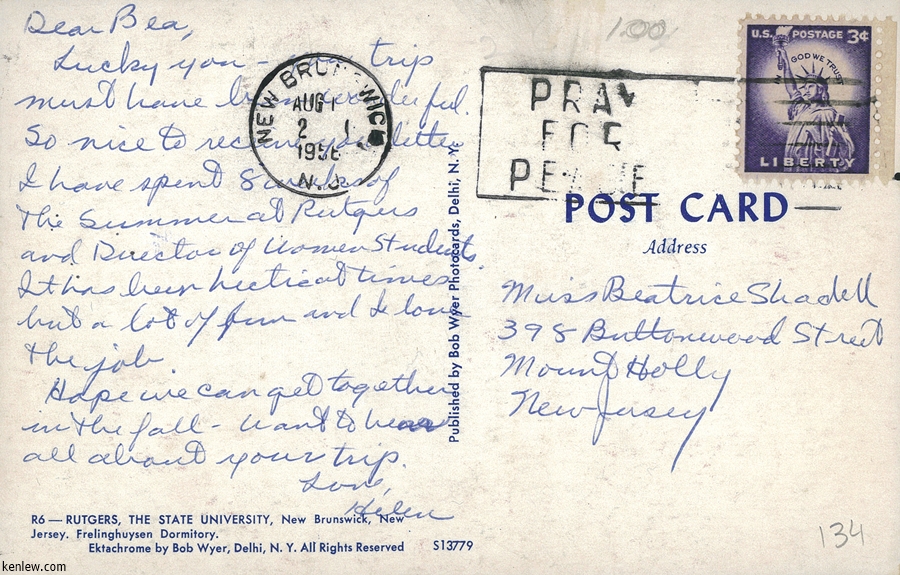 Dear Bea,
Lucky you - trip
must have been wonderful.
So nice to receive your letter
I have spent 8 weeks of
The Summer at Rutgers
and Director of Women Students.
It has been hectic at times
but a lot of fun and I love
the job
Hope we can get together
in the fall - want to hear
all about your trip.
Love,
Helen
R6 — RUTGERS, THE STATE UNIVERSITY, New Brunswick, New
Jersey. Frelinghuysen Dormitory.
Ektachrome by Bob Wyer, Delhi, N. Y. All Rights Reserved S13779
Published by Bob Wyer Photocards, Delhi, N. Y.
NEW BRUNSWICK
AUG 1
2
1956
N.J.
1.00
PRAY
FOR
PEACE
U.S. POSTAGE 3¢
IN GOD WE TRUST
LIBERTY
POST CARD
Address
Miss Beatrice Shadell
398 Buttonwood Street
Mount Holly
New Jersey
134
kenlew.com